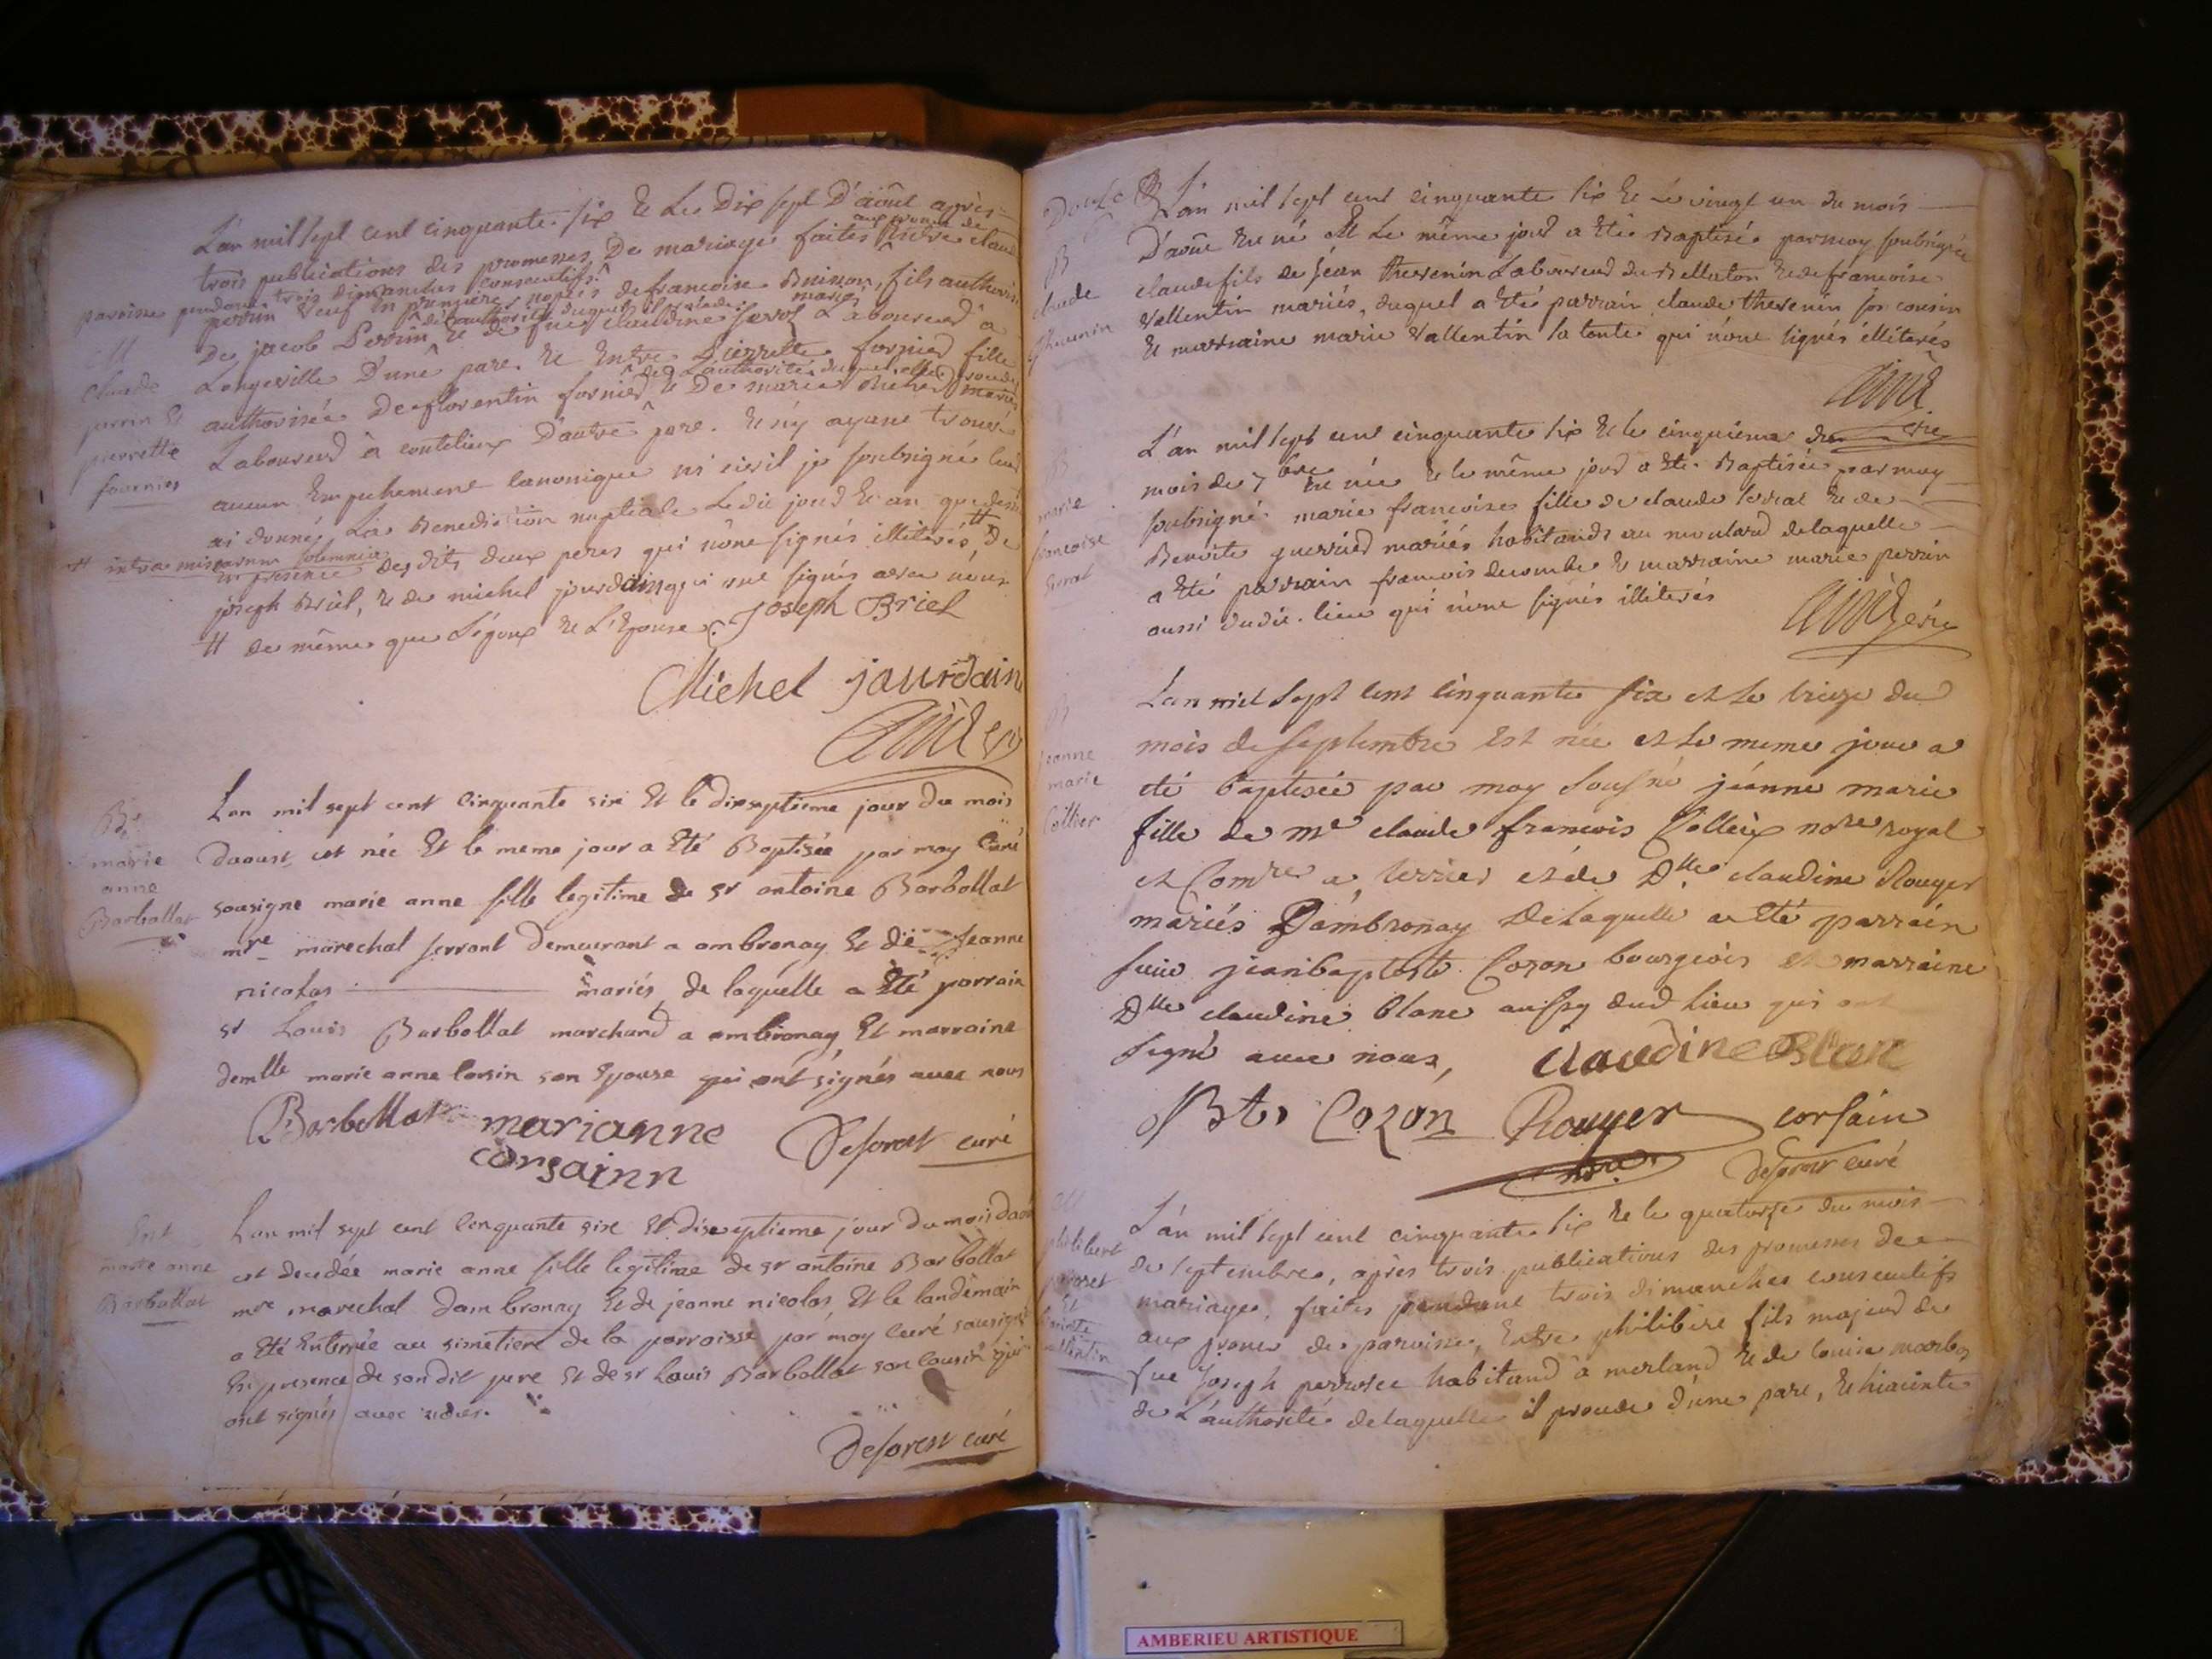 L'an mil sept cent cinquante six & Le Dix sept D'aoûst après
trois publications des promesses De mariage faites aux prones de
paroisse pendant trois dimanches consecutifs entre claude
perrin veuf en premiere nopces de francoise Buisson, fils authorisé
De jacob Perrin & de claudine mariés Laboureurs à
Longeville D'une part. Et Entre Pierrette fornier fille
authorisée De florentin fornier & De maria mariés
Laboureurs à coutelieux D'autre part. Et n'y ayant trouvé
aucun Empechement canonique ni civil je soubsigné leur
ai donnés La Benediction nuptiale Le dit jour & an que dessus
# intra missarum solemnia
En presence desdits deux peres qui n'ont signés illiterés, # De
joseph Briel, & de michel jourdain qui ont signés avec nous
# de même que L'Epoux & L'Epouse. Joseph Briel
Michel jourdain
M
Claude
perrin &
pierrette
fournier
B
marie
anne
Barbollat
Lan mil sept cent cinquante six Et le dixseptieme jour du mois
daoust est née Et le meme jour a Eté Baptisée par moy Curé
sousigne marie anne fille legitime de sr antoine Barbollat
mre marechal ferrant demeurant a ambronay Et de Jeanne
nicolas mariés, de laquelle a Eté parrain
sr Louis Barbollat marchand a ambronay Et marraine
demlle marie anne Corsin son Epouse qui ont signés avec nous
Barbollat marianne
corsainn
Deforest curé
Ent
marie anne
Barbollat
Lan mil sept cent Cinquante six Et dixseptieme jour du mois daout
est decedée marie anne fille legitime de sr antoine Barbollat
mre marechal dambronay Et de jeanne nicolas, Et le landemain
a Eté Enterrée au simetiere de la parroisse par moy curé sousigné
En presence de son dit pere Et de sr Louis Barbollat son cousin qui
ont signés avec nous.
Deforest curé
B
claude
thevenin
L'an mil sept cent cinquante six & Le vingt un du mois
D'aoûst Est né Et Le même jour a Eté Baptisé par moy soubsigné
claude fils de jean thevenin Laboureur du Bellaton & de francoise
Vallentin mariés, duquel a Eté parrain claude thevenin son cousin
& marraine marie Vallentin sa tante qui n'ont signés illiterés
B
marie
francoise
L'an mil sept cent cinquante six & le cinquieme du
mois de 7bre Est née & le même jour a Eté Baptisée par moy
soubsigné marie francoise fille de claude & de
Benoite guerrier mariés habitants au moulard de laquelle
a Eté parrain francois decombe & marraine marie perrin
aussi dudit lieu qui n'ont signés illiterés
B
jeanne
marie
Collier
Lan mil sept cent cinquante six et le treize du
mois de septembre Est née et le meme jour a
eté baptisée par moy sousné jeanne marie
fille de me claude francois nore royal
et Comre a terrier et de Dlle claudine Rouyer
mariés Dambronay De laquelle a Eté parrain
sieur jeanbaptiste Cozon bourgeois et marraine
Dlle claudine blanc aussy dud lieu qui ont
signé avec nous, claudine Blanc
JBte Cozon Rouyer corsain
nre
Deforest curé
M
philibert
perroset
Et
L'an mil sept cent cinquante six & le quatorze du mois
de septembre, après trois publications des promesses de
mariage, faites pendant trois dimanches consecutifs
aux prones de paroisse, Entre philibert fils majeur de
feu Joseph perroset habitant à merland & de louise
de L'authorité de laquelle il procede d'une part, & hiacinte
AMBERIEU ARTISTIQUE